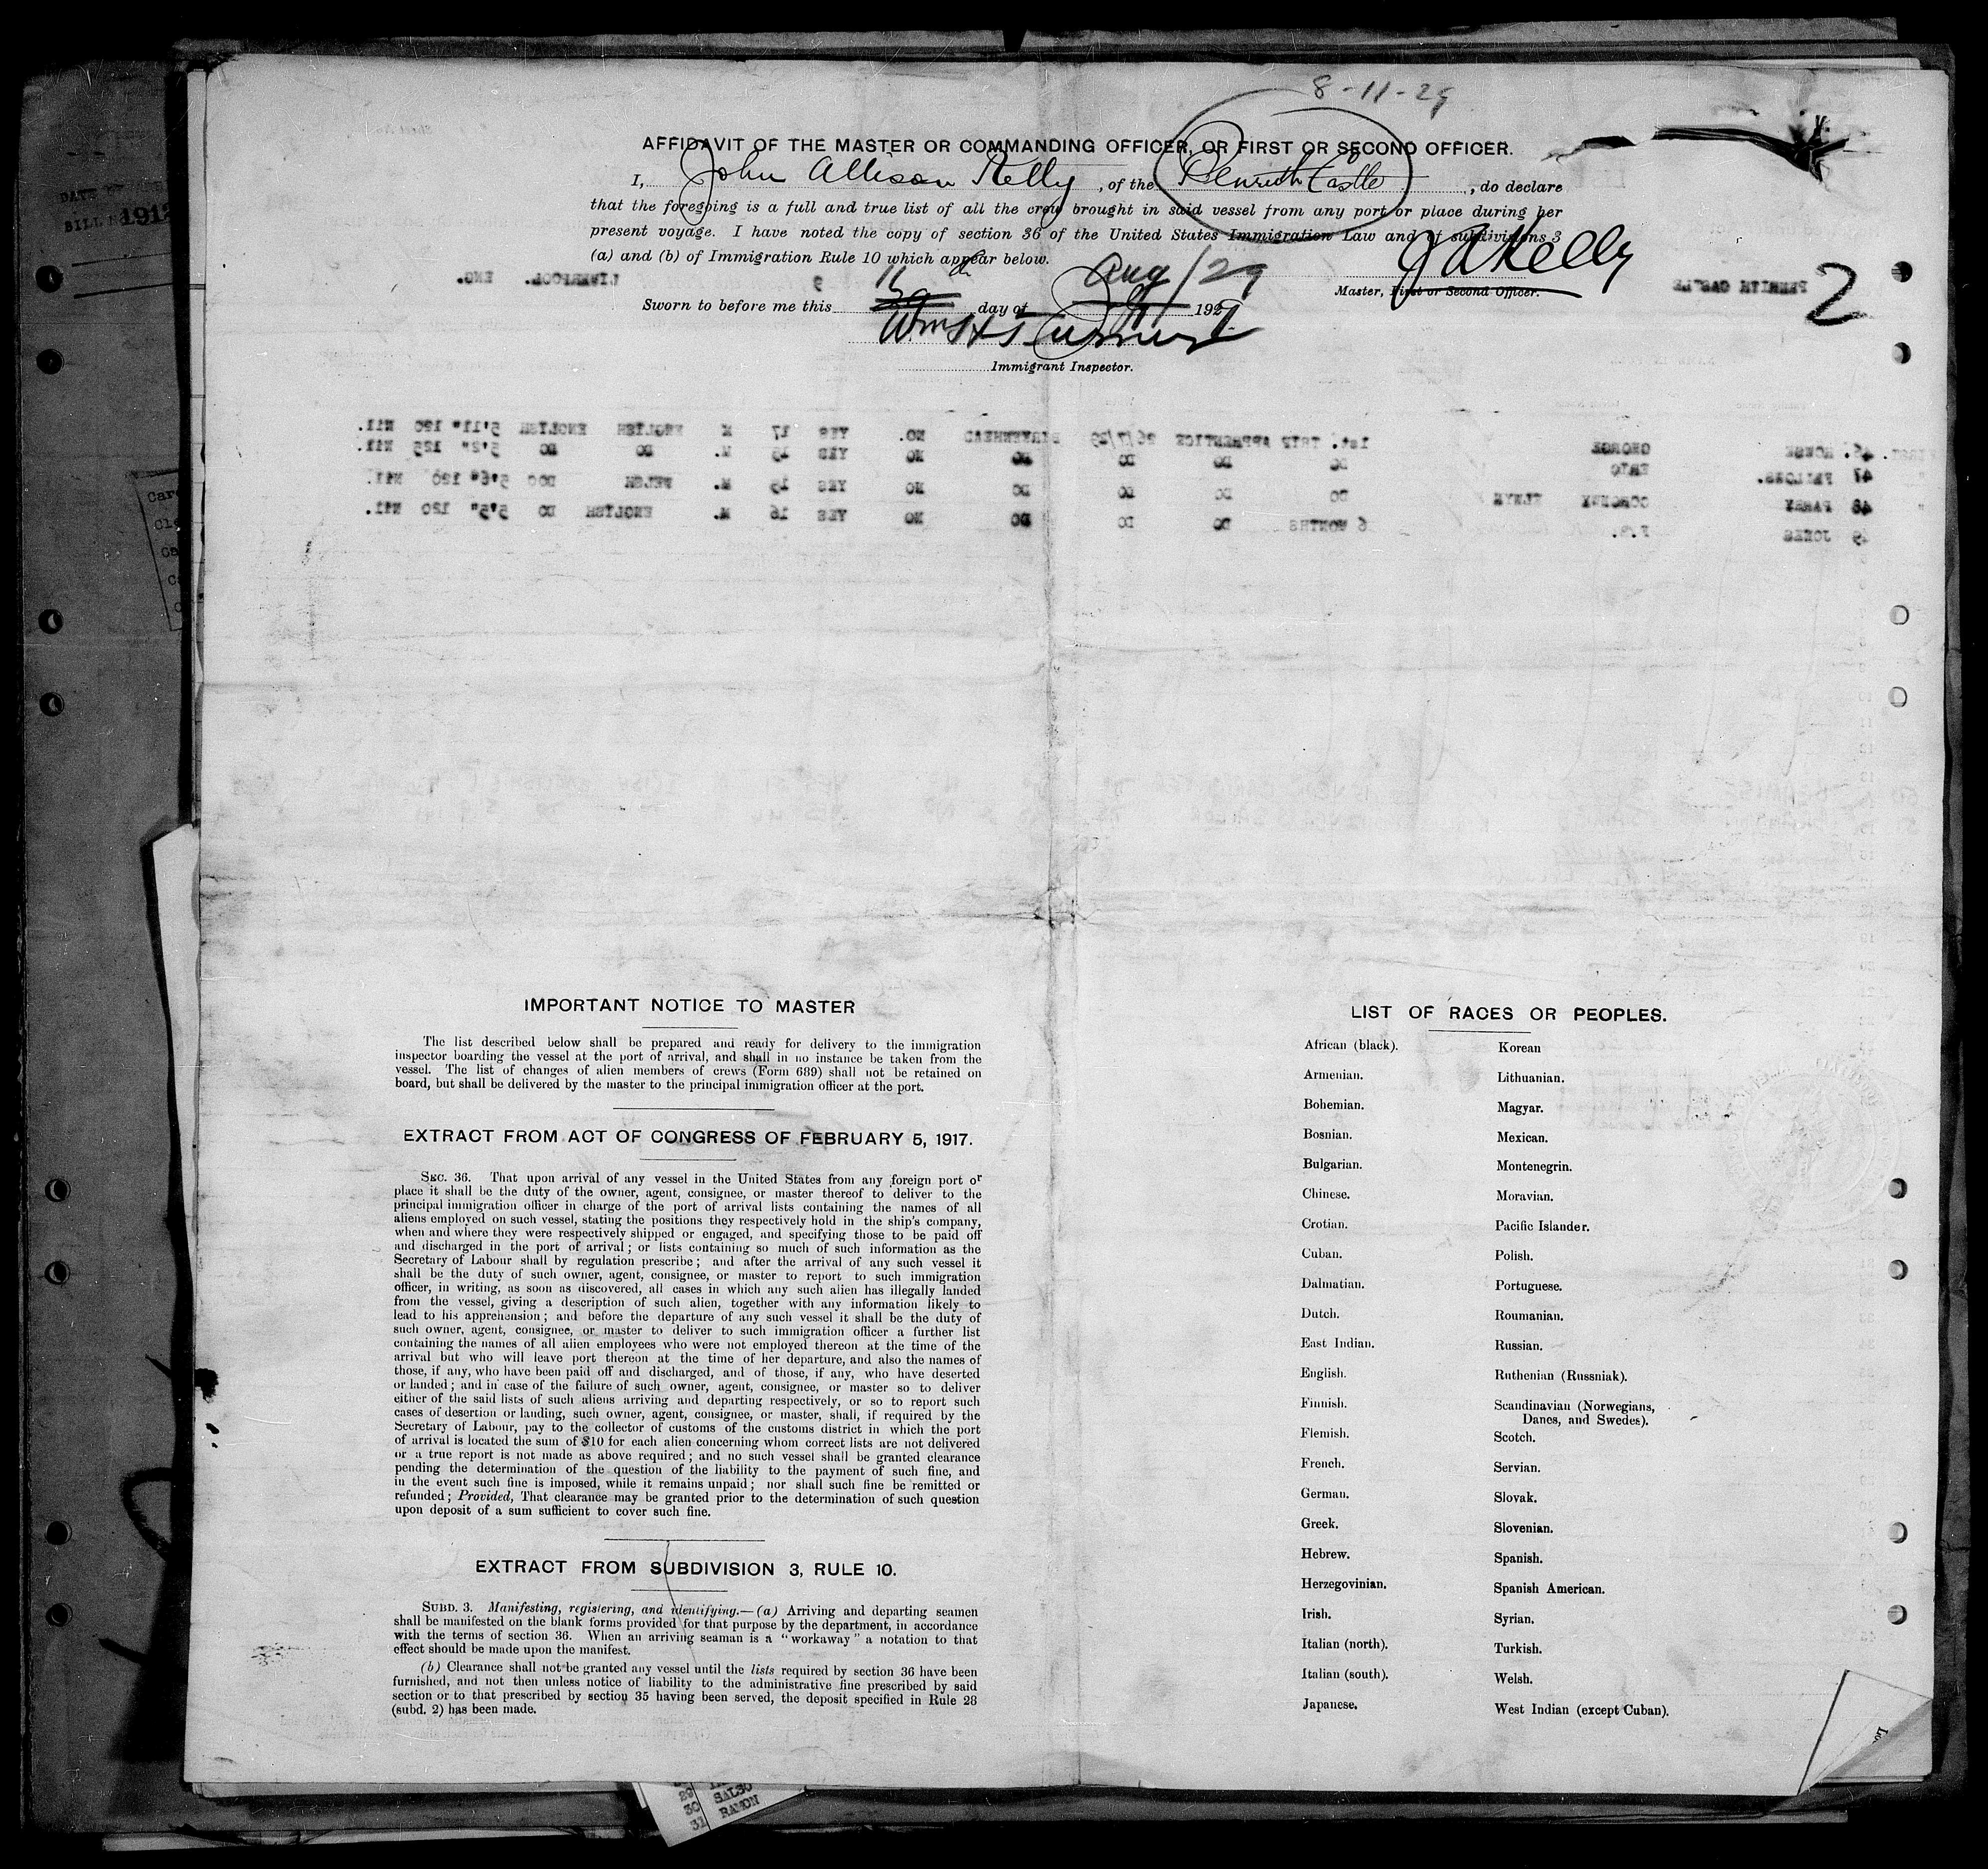 8-11-29
AFFIDAVIT OF THE MASTER OR COMMANDING OFFICER, OR FIRST OR SECOND OFFICER.
I, John Allison Kelly, of the Penrith Castle, do declare
that the foregoing is a full and true list of all the crew brought in said vessel from any port or place during her
present voyage. I have noted the copy of section 36 of the United States Immigration Law and of subdivisions 3
(a) and (b) of Immigration Rule 10 which appear below.
J A Kelly
Master, First or Second Officer.
PENRITH CASTLE
2
LIVERPOOL. ENG.
11 Aug/29
Sworn to before me this day of 192
Wm H
Immigrant Inspector.
46. HOWSE GEORGE 1st. TRIP APPRENTICE 26/7/29 BIRKENHEAD NO. YES 17 M ENGLISH ENGLISH 5'11" 190 Nil.
47 FELLOWS. ERIC DO DO DO DO NO YES 19 M. DO DO 5'2" 125 Nil.
48 PARRY DO DO DO DO NO YES 19 M. WELSH DOO 5'6" 120 Nil.
49 JONES F.S. 6 MONTHS DO DO DO NO YES 16 M. ENGLISH DO 5'5" 120 Nil.
IMPORTANT NOTICE TO MASTER
The list described below shall be prepared and ready for delivery to the immigration
inspector boarding the vessel at the port of arrival, and shall in no instance be taken from the
vessel. The list of changes of alien members of crews (Form 689) shall not be retained on
board, but shall be delivered by the master to the principal immigration officer at the port.
EXTRACT FROM ACT OF CONGRESS OF FEBRUARY 5, 1917.
SEC. 36. That upon arrival of any vessel in the United States from any foreign port or
place it shall be the duty of the owner, agent, consignee, or master thereof to deliver to the
principal immigration officer in charge of the port of arrival lists containing the names of all
aliens employed on such vessel, stating the positions they respectively hold in the ship's company,
when and where they were respectively shipped or engaged, and specifying those to be paid off
and discharged in the port of arrival; or lists containing so much of such information as the
Secretary of Labour shall by regulation prescribe; and after the arrival of any such vessel it
shall be the duty of such owner, agent, consignee, or master to report to such immigration
officer, in writing, as soon as discovered, all cases in which any such alien has illegally landed
from the vessel, giving a description of such alien, together with any information likely to
lead to his apprehension; and before the departure of any such vessel it shall be the duty of
such owner, agent, consignee, or master to deliver to such immigration officer a further list
containing the names of all alien employees who were not employed thereon at the time of the
arrival but who will leave port thereon at the time of her departure, and also the names of
those, if any, who have been paid off and discharged, and of those, if any, who have deserted
or landed; and in case of the failure of such owner, agent, consignee, or master so to deliver
either of the said lists of such aliens arriving and departing respectively, or so to report such
cases of desertion or landing, such owner, agent, consignee, or master, shall, if required by the
Secretary of Labour, pay to the collector of customs of the customs district in which the port
of arrival is located the sum of $10 for each alien concerning whom correct lists are not delivered
or a true report is not made as above required; and no such vessel shall be granted clearance
pending the determination of the question of the liability to the payment of such fine, and
in the event such fine is imposed, while it remains unpaid; nor shall such fine be remitted or
refunded; Provided, That clearance may be granted prior to the determination of such question
upon deposit of a sum sufficient to cover such fine.
EXTRACT FROM SUBDIVISION 3, RULE 10.
SUBD. 3. Manifesting, registering, and identifying.—(a) Arriving and departing seamen
shall be manifested on the blank forms provided for that purpose by the department, in accordance
with the terms of section 36. When an arriving seaman is a "workaway" a notation to that
effect should be made upon the manifest.
(b) Clearance shall not be granted any vessel until the lists required by section 36 have been
furnished, and not then unless notice of liability to the administrative fine prescribed by said
section or to that prescribed by section 35 having been served, the deposit specified in Rule 28
(subd. 2) has been made.
LIST OF RACES OR PEOPLES.
African (black).
Armenian.
Bohemian.
Bosnian.
Bulgarian.
Chinese.
Crotian.
Cuban.
Dalmatian.
Dutch.
East Indian.
English.
Finnish.
Flemish.
French.
German.
Greek.
Hebrew.
Herzegovinian.
Irish.
Italian (north).
Italian (south).
Japanese.
Korean
Lithuanian.
Magyar.
Mexican.
Montenegrin.
Moravian.
Pacific Islander.
Polish.
Portuguese.
Roumanian.
Russian.
Ruthenian (Russniak).
Scandinavian (Norwegians,
Danes, and Swedes).
Scotch.
Servian.
Slovak.
Slovenian.
Spanish.
Spanish American.
Syrian.
Turkish.
Welsh.
West Indian (except Cuban).
29
30 SALSO
31 RAMON